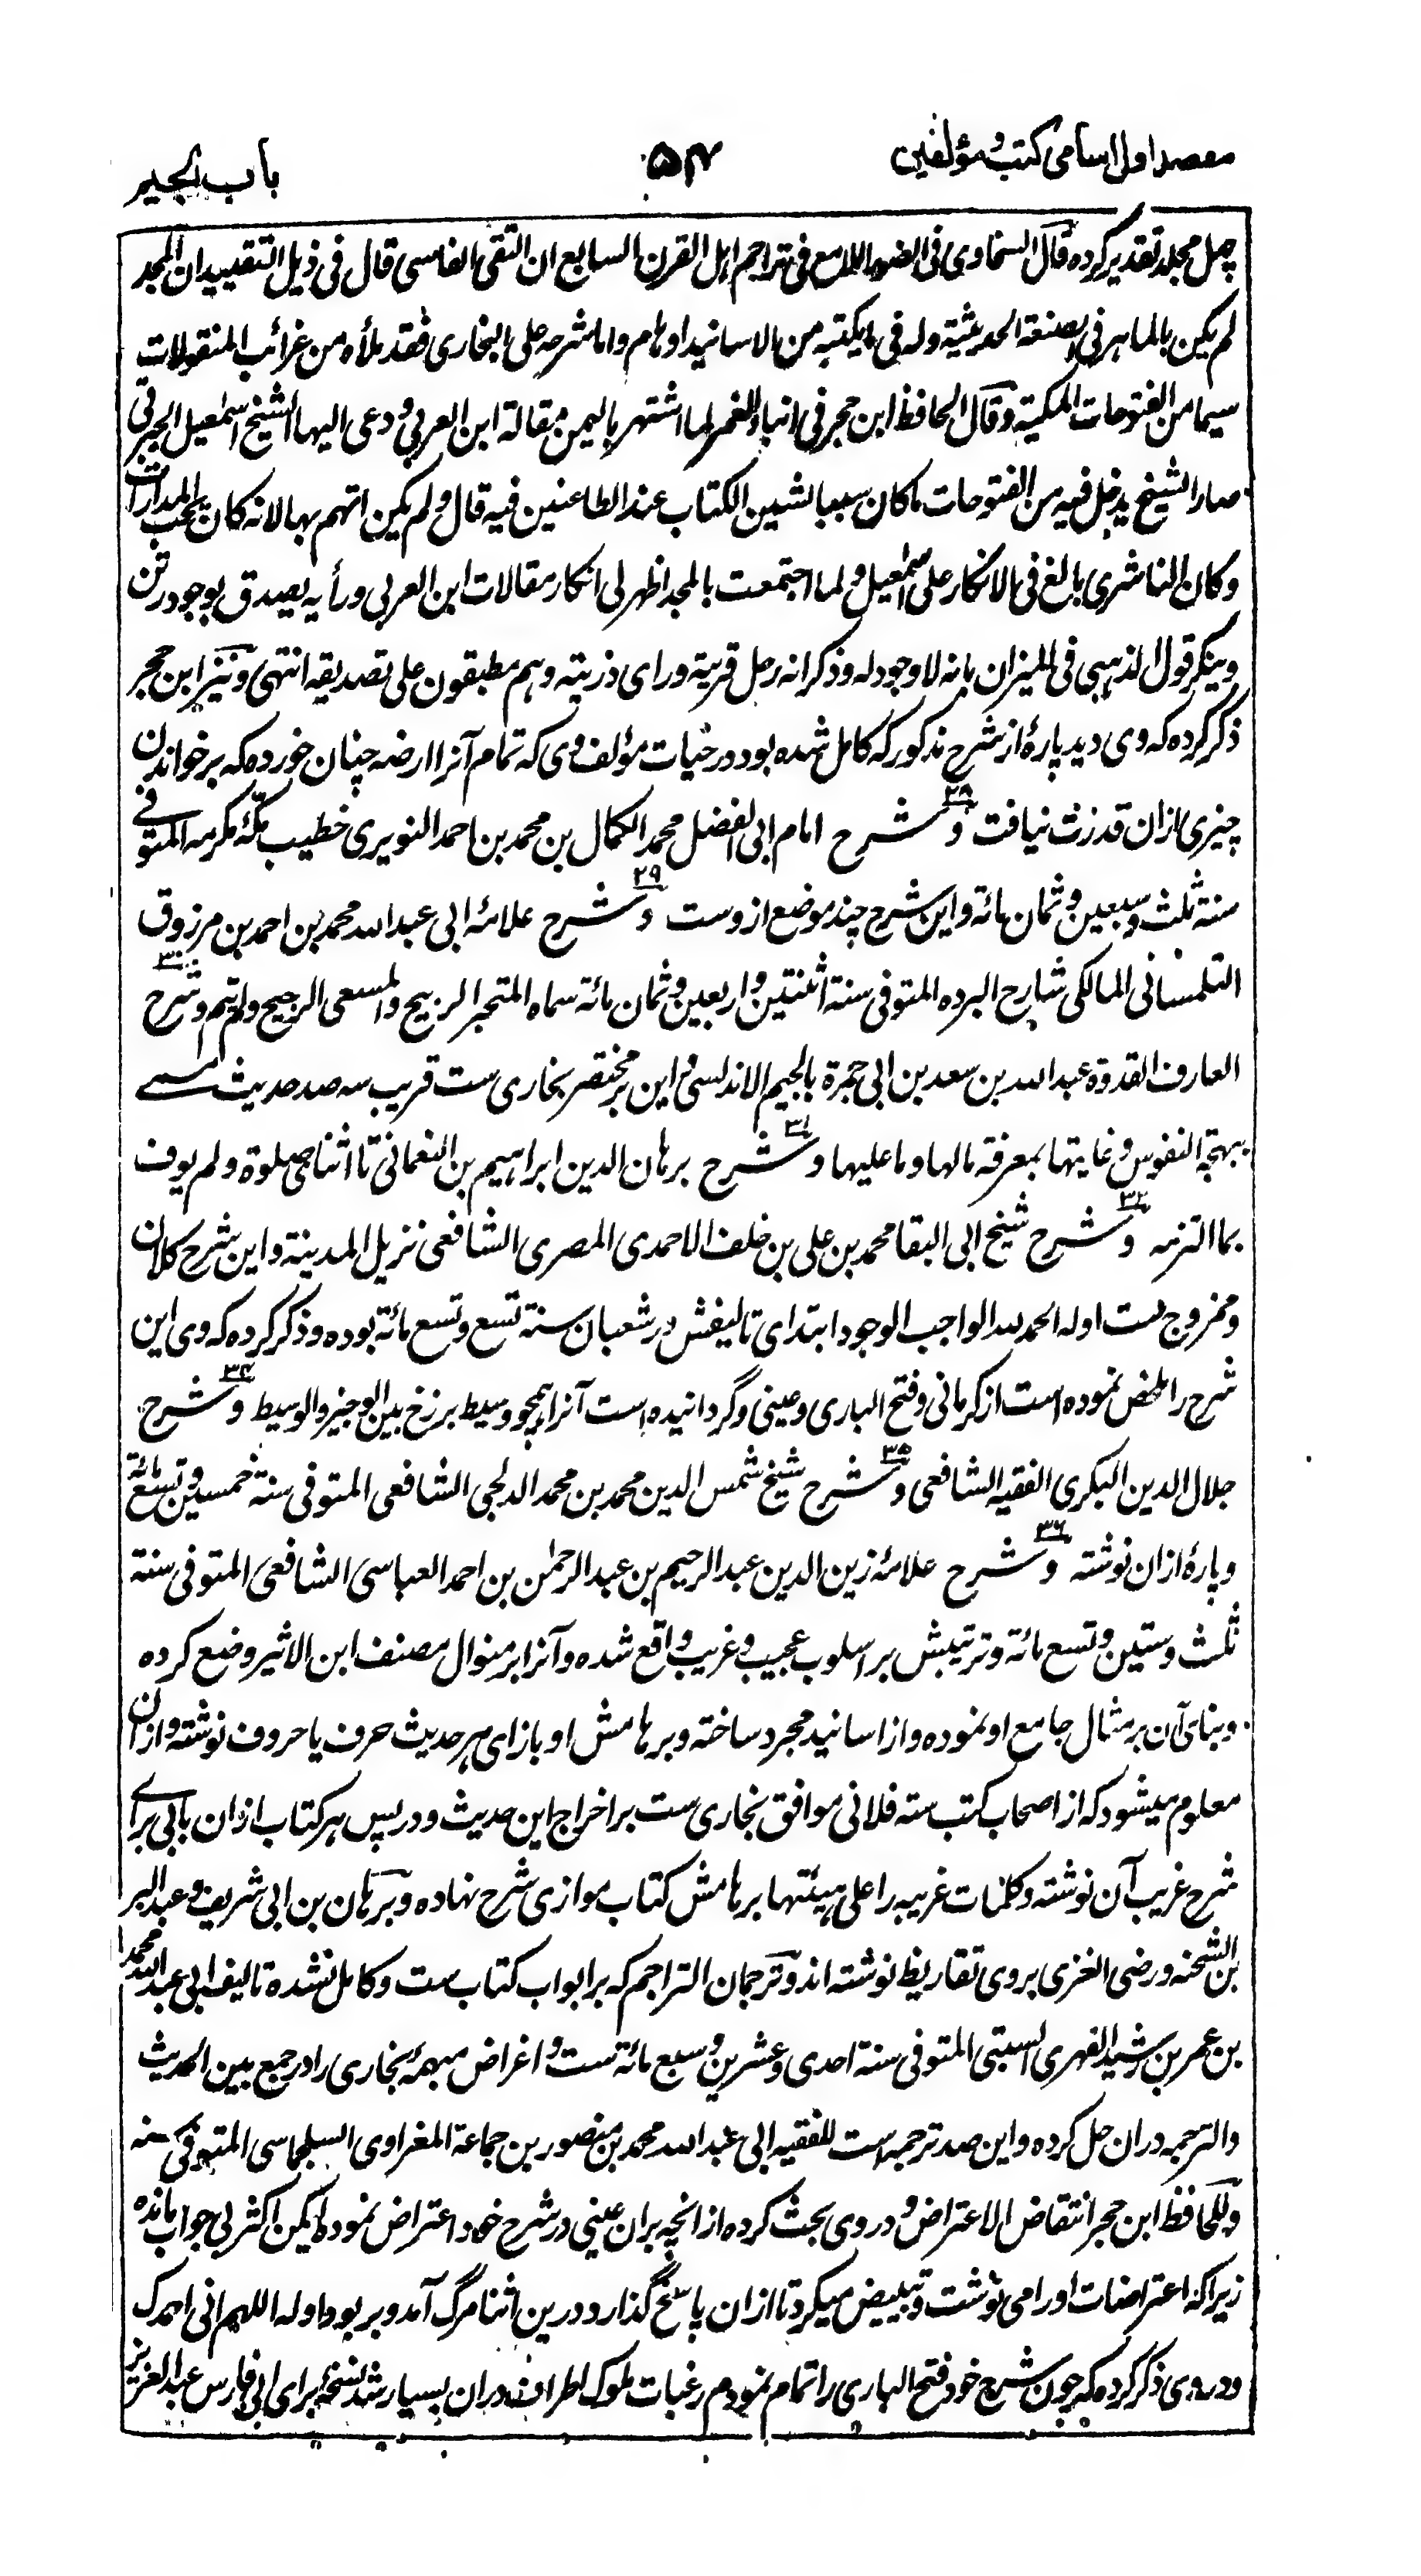 مقصد اول اسامی کتب و مؤلفین
۵۴
باب الجیم
چهل مجلد تقدیر کرده قال السخاوی فی الضوء اللامع فی تراجم اهل القرن السابع ان التقی الفاسی قال فی ذیل التقیید ان المجد
لم یکن بالماهر فی الصنعة الحدیثیة وله فی ما یکتبه من الاسانید اوهام واما شرحه علی البخاری فقد ملأه من غرائب المنقولات
سیما من الفتوحات المکیة وقال الحافظ ابن حجر فی انباء الغمر لما اشتهر بالیمن مقالة ابن العربی ودعی الیها الشیخ اسمٰعیل الجبرتی
صار الشیخ یدخل فیه من الفتوحات ما کان سببا لشین الکتاب عند الطاعنین فیه قال ولم یکن اتهم بها لانه کان یحب المدارات
وکان الناشری بالغ فی الانکار علی اسمٰعیل ولما اجتمعت بالمجد اظهر لی انکار مقالات ابن العربی ورأیه یصدق بوجود رتن
وینکر قول الذهبی فی المیزان بانه لا وجود له وذکر انه دخل قریته ورای ذریته وهم مطبقون علی تصدیقه انتهی ونیز ابن حجر
ذکر کرده که وی دید پارهٔ از شرح مذکور که کامل شده بود در حیات مؤلف وی که تمام آنرا ارضه چنان خورده که بر خواندن
چیزی ازان قدرت نیافت ۲۸ وشرح امام ابی الفضل محمد الکمال بن محمد بن احمد النویری خطیب مکهٔ مکرمه المتوفی
سنة ثلث وسبعین وثمان مائة واین شرح چند موضع ازوست ۲۹ وشرح علامهٔ ابی عبد الله محمد بن احمد بن مرزوق
التلمسانی المالکی شارح البرده المتوفی سنة اثنتین واربعین وثمان مائة سماه المتجر الربیح والمسعی الرجیح ولم یتم ۳۰ وشرح
العارف القدوة عبد الله بن سعد بن ابی جمرة بالجیم الاندلسی واین بر مختصر بخاری ست قریب سه صد حدیث مسمی
ببهجة النفوس وغایتها بمعرفة مالها وما علیها ۳۱ وشرح برهان الدین ابراهیم بن النعمانی تا اثنای صلوة ولم یوف
بما التزمه ۳۲ وشرح شیخ ابی البقا محمد بن علی بن خلف الاحمدی المصری الشافعی نزیل المدینة واین شرح کلان
وممزوج ست اوله الحمد لله الواجب الوجود ابتدای تالیفش در شعبان سنة تسع وتسع مائة بوده وذکر کرده که وی این
شرح را ملخص نموده است از کرمانی وفتح الباری وعینی وگردانیده است آنرا همچو وسیط برزخ بین الوجیز والوسیط ۳۴ وشرح
جلال الدین البکری الفقیه الشافعی ۳۵ وشرح شیخ شمس الدین محمد بن محمد الدلجی الشافعی المتوفی سنة خمسین وتسع مائة
وپارهٔ ازان نوشته ۳۶ وشرح علامهٔ زین الدین عبد الرحیم بن عبد الرحمٰن بن احمد العباسی الشافعی المتوفی سنة
ثلث وستین وتسع مائة وترتیبش بر اسلوب عجیب وغریب واقع شده وآنرا بر منوال مصنف ابن الاثیر وضع کرده
وبنای آن بر مثال جامع او نموده واز اسانید مجرد ساخته وبر هامش او بازای هر حدیث حرف یا حروف نوشته وازان
معلوم میشود که از اصحاب کتب سته فلانی موافق بخاری ست بر اخراج این حدیث ودر پس هر کتاب ازان بابی برای
شرح غریب آن نوشته وکلمات غریبه را علی هیئتها بر هامش کتاب موازی شرح نهاده وبرهان بن ابی شریف وعبد البر
بن الشحنه ورضی الغزی بروی تقاریظ نوشته اند وترجمان التراجم که بر ابواب کتاب ست وکامل نشده تالیف ابی عبد الله محمد
بن عمر بن رشید الفهری السبتی المتوفی سنة احدی وعشرین وسبع مائة ست واغراض مبهمهٔ بخاری را در جمع بین الحدیث
والترجمه دران حل کرده واین صد ترجمه است للفقیه ابی عبد الله محمد بن منصور بن جماعة المغراوی السلجماسی المتوفی سنه
وللحافظ ابن حجر انتقاض الاعتراض ودروی بحث کرده از انچه بران عینی در شرح خود اعتراض نموده لیکن اکثر بی جواب مانده
زیراکه اعتراضات او را می نوشت وتبییض میکرد تا ازان پاسخ گذارد درین اثنا مرگ آمد وبر بود اوله اللهم انی احمدک
ودروی ذکر کرده که چون شرح خود فتح الباری را تمام نمودم رغبات ملوک اطراف دران بسیار شد نسخه برای ابی فارس عبد العزیز